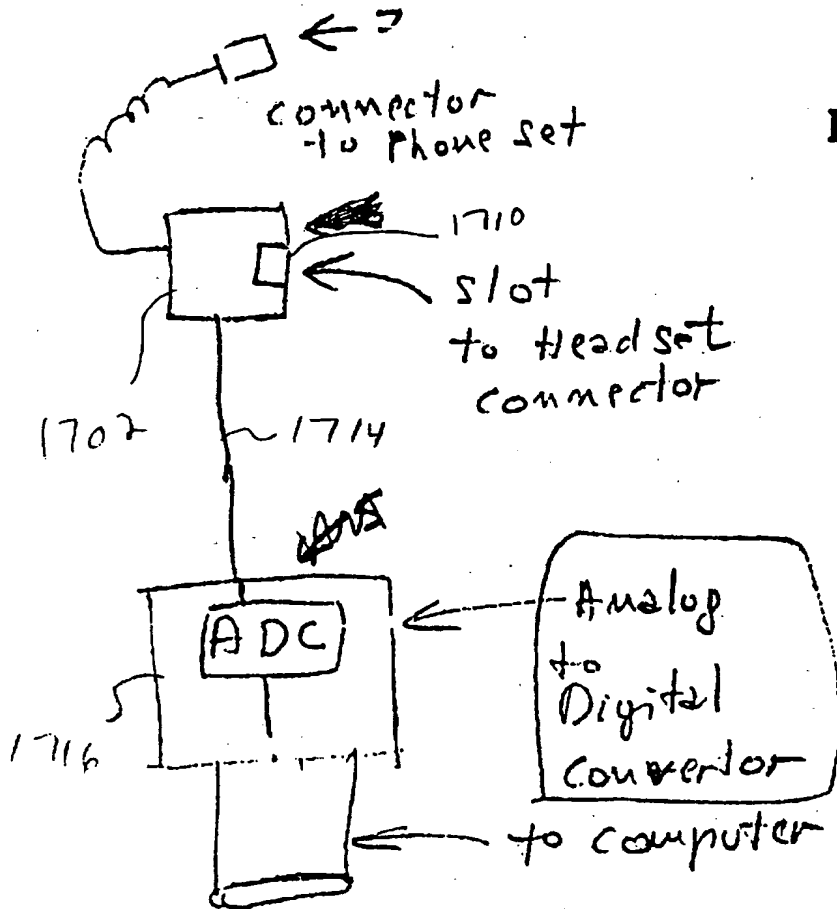 connector
to Phone set
1710
slot
to Headset
connector
1702
1714
ADC
Analog
to
Digital
Convertor
1716
to computer